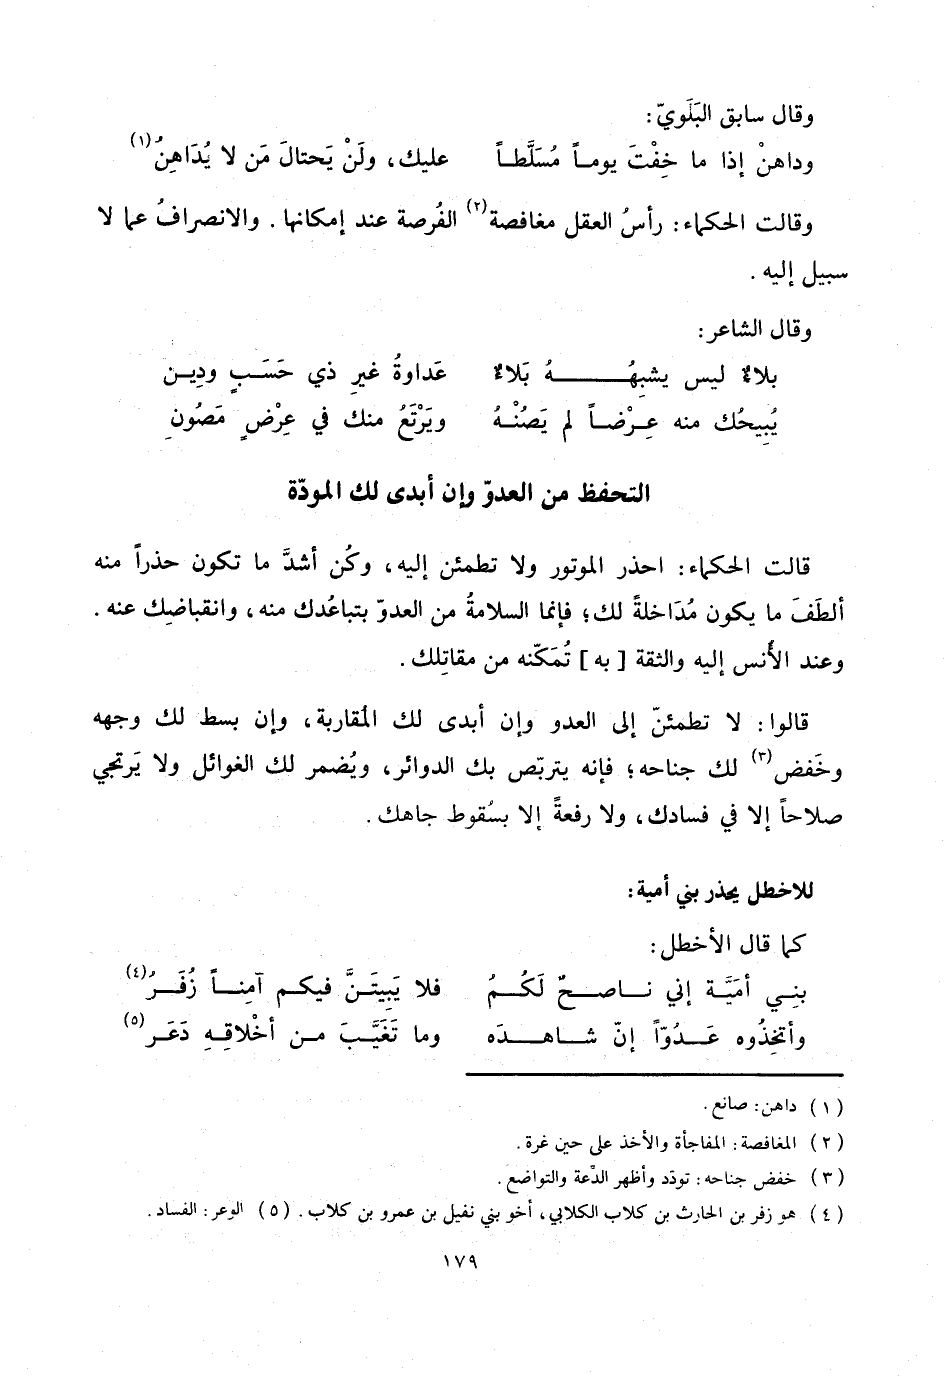 وقال سابق البَلَويّ:
وداهنْ إذا ما خِفْتَ يوماً مُسَلَّطاً عليك، ولَنْ يَحتالَ مَن لا يُدَاهِنُ(١)
وقالت الحكماء: رأسُ العقل مغافصة(٢) الفُرصة عند إمكانها. والانصرافُ عما لا
سبيل إليه.
وقال الشاعر:
بلاءٌ ليس يشبهُهُ بَلاءٌ عَداوةُ غيرِ ذي حَسَبٍ ودِين
يُبِيحُك منه عِرْضاً لم يَصُنْهُ ويَرْتَعُ منك في عِرْضٍ مَصُونِ
التحفظ من العدوّ وإن أبدى لك المودّة
قالت الحكماء: احذر الموتور ولا تطمئن إليه، وكُن أشدَّ ما تكون حذراً منه
ألطَفَ ما يكون مُدَاخلةً لك؛ فإنما السلامةُ من العدوّ بتباعُدك منه، وانقباضِك عنه.
وعند الأُنس إليه والثقة [به] تُمَكّنه من مقاتلك.
قالوا: لا تطمئنّ إلى العدو وإن أبدى لك المُقاربة، وإن بسط لك وجهه
وخَفض(٣) لك جناحه؛ فإنه يتربّص بك الدوائر، ويُضمر لك الغوائل ولا يَرتجي
صلاحاً إلا في فسادك، ولا رفعةً إلا بسُقوط جاهك.
للاخطل يحذر بني أمية:
كما قال الأخطل:
بنِي أمَيَّة إني ناصحٌ لَكُمُ فلا يَبِيتَنَّ فيكم آمِناً زُفَرُ(٤)
وأتخِذُوه عَدُوّاً إنّ شاهدَه وما تَغَيَّبَ من أخْلاقِهِ دَعَر(٥)
(١) داهن: صانع.
(٢) المغافصة: المفاجأة والأخذ على حين غرة.
(٣) خفض جناحه: تودّد وأظهر الدّعة والتواضع.
(٤) هو زفر بن الحارث بن كلاب الكلابي، أخو بني نفيل بن عمرو بن كلاب. (٥) الوعر: الفساد.
١٧٩